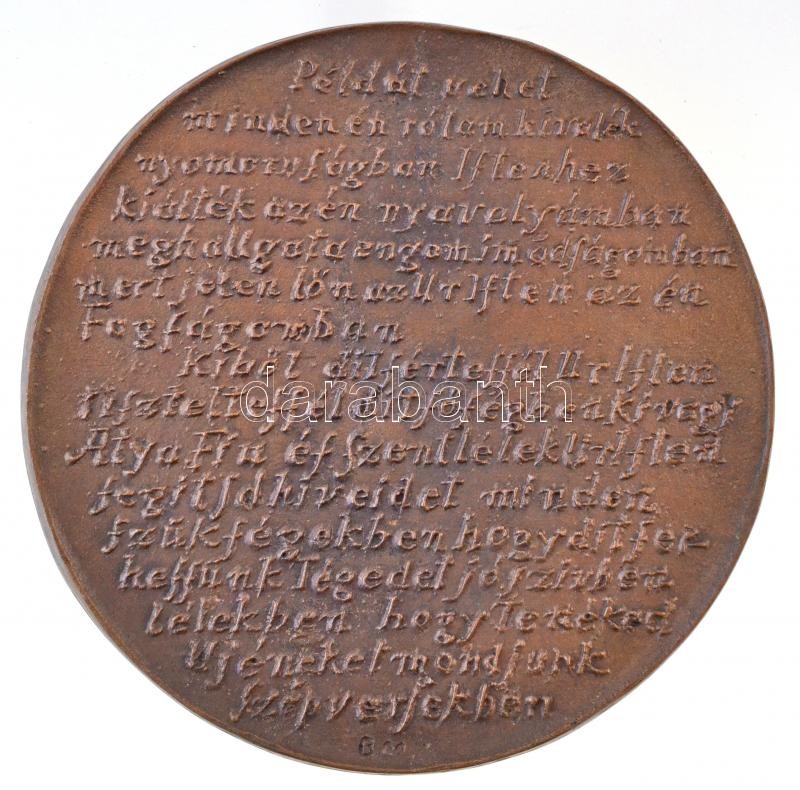 Példát vehet
minden én rólam kivelék
nyomoruſágban Iſtenhez
kiálték az én nyavalyámban
meghallgata engem imádſágomban
mert jelen lőn az Ur Iſten az én
ſogſágomban
Kiből ditſérteſſél Ur Iſten
ki vagy
Atya Fiu éſ Szent lélek Ur Iſten
ſegitſd hiveidet minden
ſzükſégekben hogy ditſér
heſſünk Tégedet jó ſzivben
lélekben hogy Teneked
Uj éneket mondjunk
ſzép verſekben
BM
darabanth